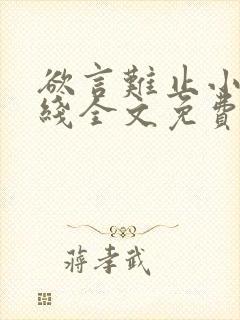 欲言難止小
綫全文免費
蔣孝武